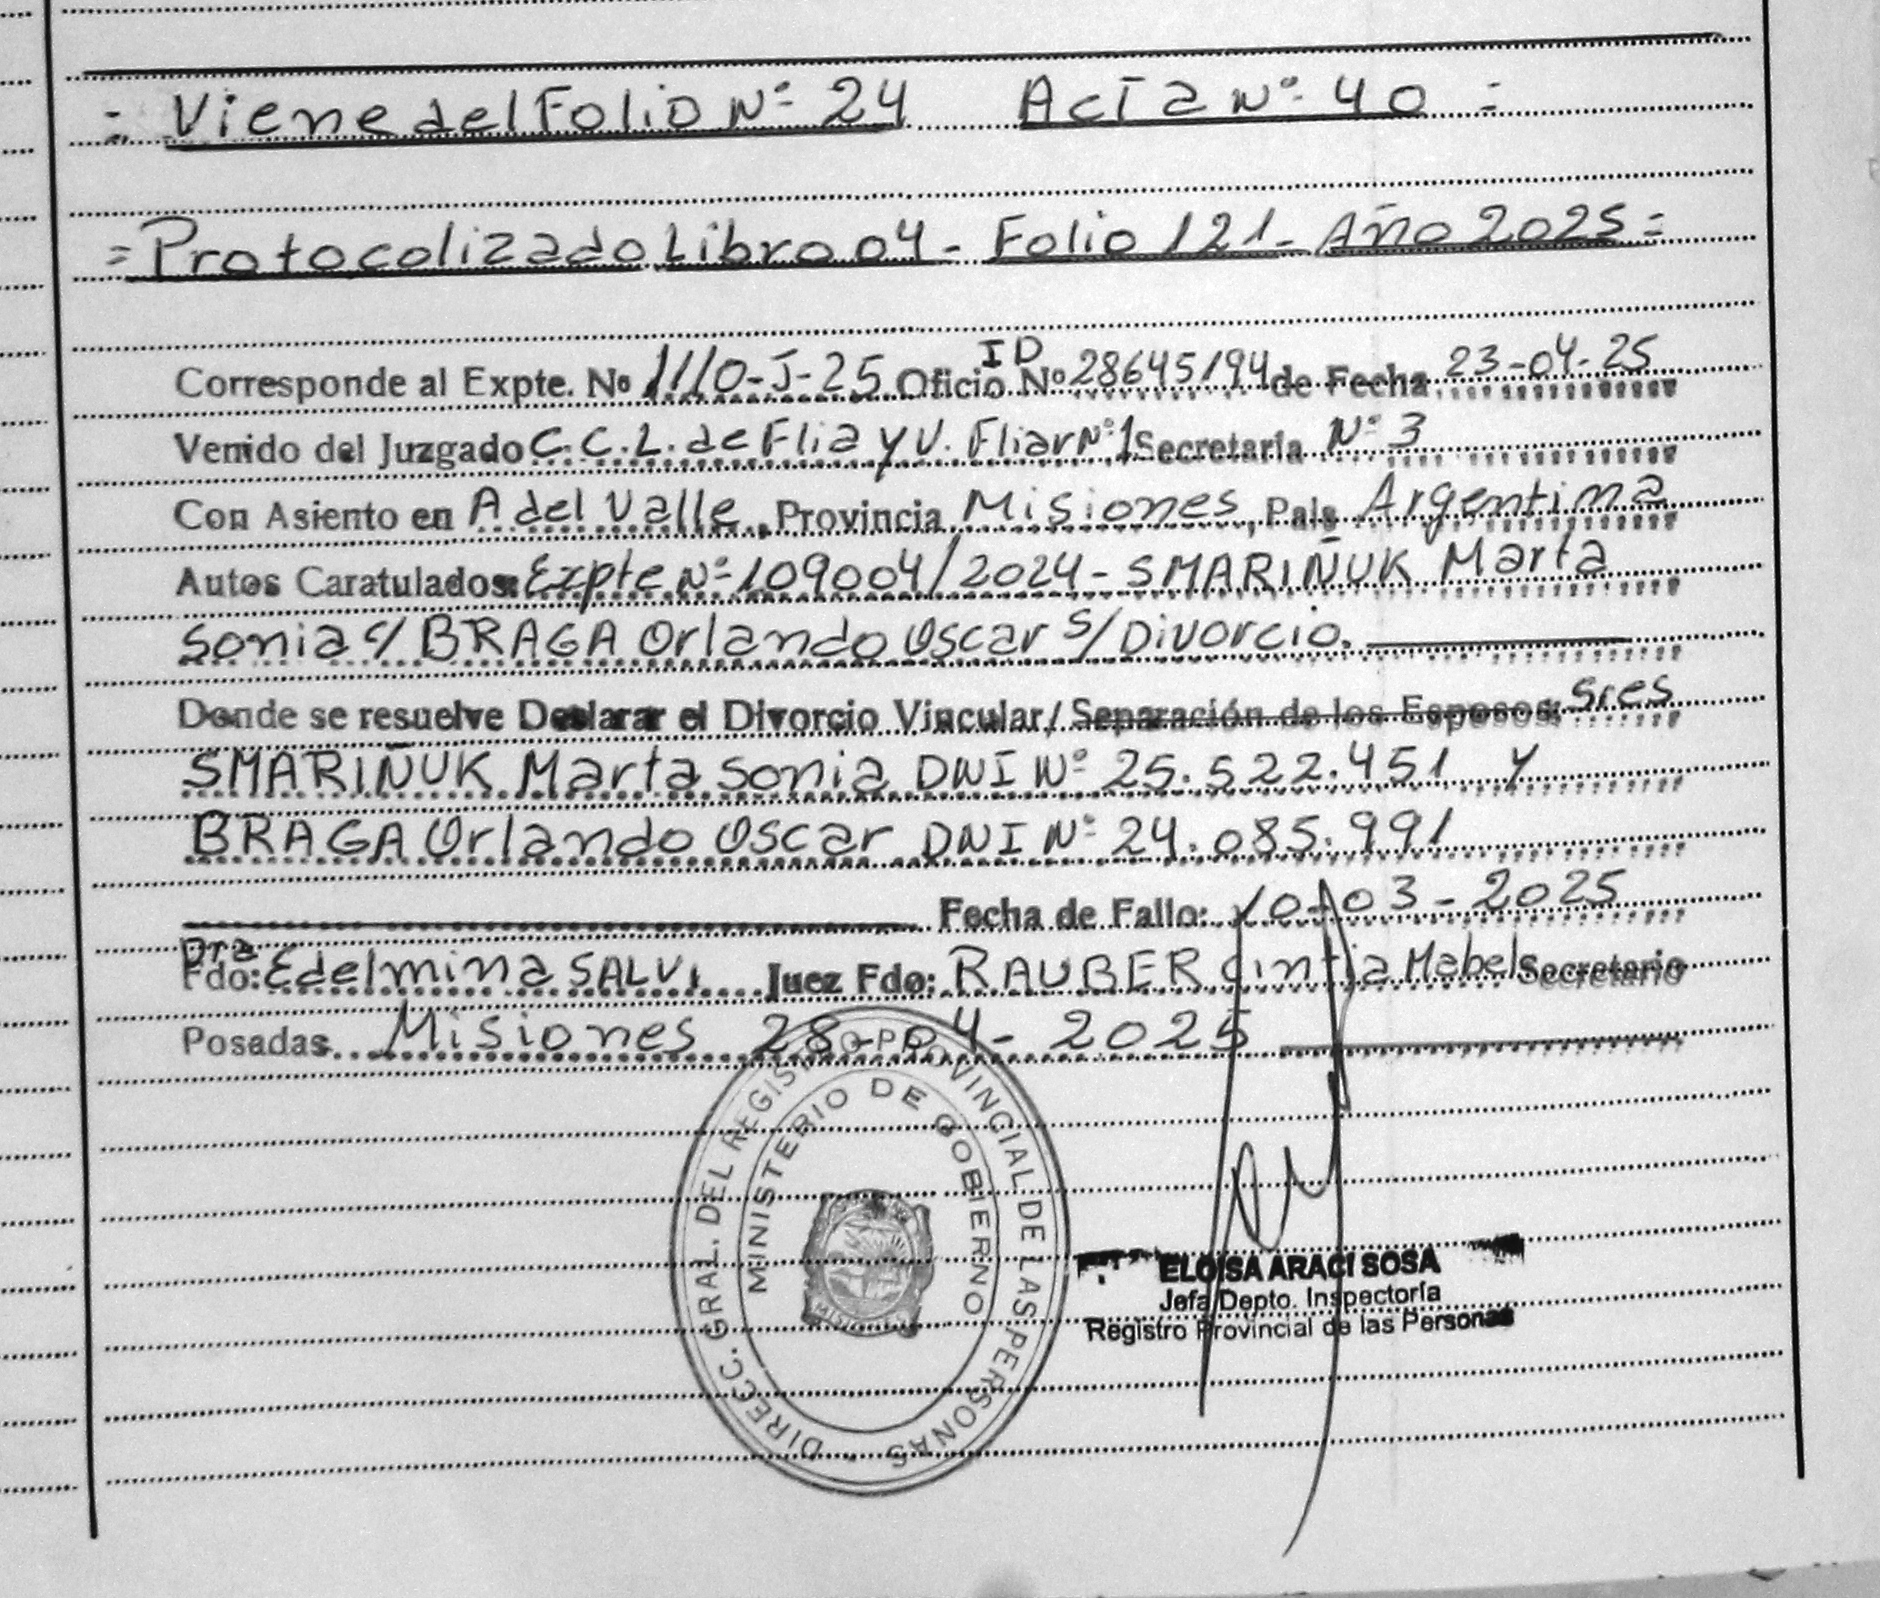 = Viene del Folio Nº 24 Acta Nº 40 =
= Protocolizado Libro 04 - Folio 121 - Año 2025 =
Corresponde al Expte. Nº 1110-J-25 Oficio ID Nº 28645194 de Fecha 23-04-25
Venido del Juzgado C.C.L. de Flia y V. Fliar Nº 1 Secretaría Nº 3
Con Asiento en A del Valle, Provincia Misiones, País Argentina
Autos Caratulados: Expte Nº 109004/2024 - SMARIÑUK Marta
Sonia c/ BRAGA Orlando Oscar s/ Divorcio.
Donde se resuelve Declarar el Divorcio Vincular / Separación de los Esposos: Sres
SMARIÑUK Marta Sonia DNI Nº 25.522.451 y
BRAGA Orlando Oscar DNI Nº 24.085.991
Fecha de Fallo: 10-03-2025
Dra
Fdo: Edelmina SALVI Juez Fdo: RAUBER Cintia Mabel Secretario
Posadas Misiones 28-04-2025
DIRECC. GRAL. DEL REGISTRO PROVINCIAL DE LAS PERSONAS
MINISTERIO DE GOBIERNO
MISIONES
ELOISA ARACI SOSA
Jefa Depto. Inspectoría
Registro Provincial de las Personas